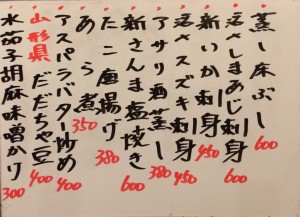 蒸し床ぶし 600
活〆しまあじ刺身 600
新いか刺身 450
活〆スズキ刺身 450
アサリ酒蒸し 380
新さんま塩焼き 600
たこ唐揚げ 380
あら煮 350
アスパラバター炒め 400
山形県 だだちゃ豆 400
水茄子胡麻味噌かけ 300